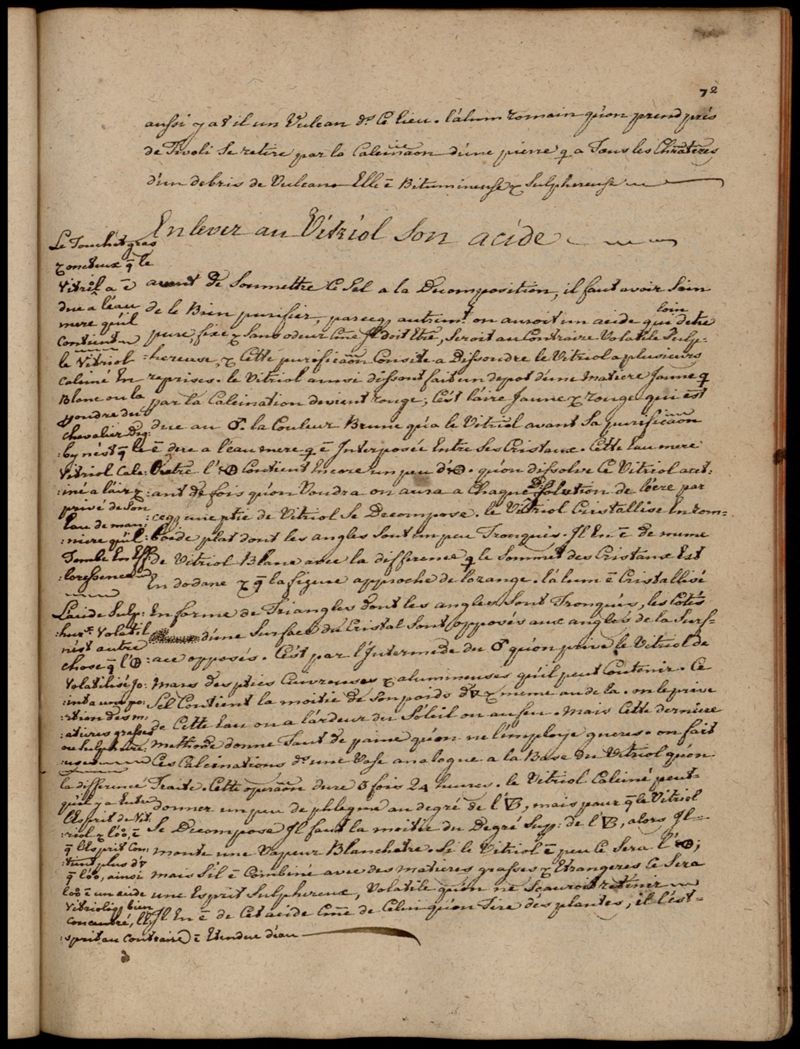 72
aussi y at il un Vulcan ds. Ce lieu. l'alum romain qu'on prend près
de Tivoli Se retire par la Calcinaõn d'une pierre q a Tous les Chratères
d'un debris de Vulcans Elle ẽ Bitumineuse & Sulphereuse
Enlever au Vitriol Son acide
avant de Soumettre Ce Sel a la Decomposition, il faut avoir Soin
de le Bien purifier, parceq autremt. on auroit un acide qui loin detre
pure, fixe & Sans odeur Cõme Il doit Etre, Seroit au Contraire Volatile Sulp-
:hereuse, & Cette purificaõn Consite a Dissoudre le Vitriol a plusieurs
reprises. le Vitriol ainsi dissout fait un depot d'une Matiere Jaune q
par la Calcination devient rouge, C'est l'aire Jaune & rouge qui est
due au ♂. la Couleur Brune qu'a le Vitriol avant Sa purificaõn
ẽ due a l'eau mere q ẽ Interposée Entre Ses Cristaux. Cette Eau mere
Outre l' Contient Encore un peu d' . qu'on dissolve Ce Vitriol a cet-
:ant de fois qu'on Voudra on aura a Chaque Dissolution de l'ocre par
ceq une ptie de Vitriol Se Decompose. le Vitriol Cristallise En rom-
:boide plat dont les angles Sont un peu Tronqués. Il En ẽ de meme
de Vitriol Blanc avec la difference q le Sommet des Cristaux Est
En dodane & q la figure approche de lozange. l'alum ẽ Cristallisé
En forme de Triangles dont les angles Sont Tronqués, les Cotés
d'une Surface du Cristal Sont opposés aux angles de la Surf-
:ace opposés. C'est par l'Intermede du ♂ qu'on prive le Vitriol de
mars des pties Cuivreuses & alumineuses qu'il peut Contenir. Ce
Sel Contient la moitie de Son poids d'🜄 & meme au dela. on le prive
de Cette Eau ou a l'ardeur du Soleil ou au feu. Mais Cette derniere
methode donne Tant de paine qu'on ne l'employe gueres. on fait
Ces Calcinations ds. une Vase analogue a la Base du Vitriol qu'on
Traite. Cette operaõn dure 3 fois 24 heures. le Vitriol Calciné peut
donner un peu de phlegme au degré de l' , mais pour q le Vitriol
Se Decompose Il faut la moitie du Degré Supp. de l' , alors Il
monte une Vapeur Blanchatre. Si le Vitriol ẽ peu Ce Sera l' ;
mais S'il ẽ Combiné avec des matieres grasses & Etrangeres Ce Sera
une Esprit Sulphereux, Volatile qu'on ne Scauroit retenir
Il En ẽ de Cet acide Cõme de Celui qu'on Tire des plantes, il l'est-
Le Touchet gras
& onctueux q le
Vitriol a ẽ
due a l'eau
mere qu'il
Contient
le Vitriol
Calciné En
Blanc ou la
poudre du
chevalier Dig
:by n'est q le
Vitriol Calc-
:iné a l'air &
privé de Son
Eau de man-
:iere qu'il
Tombe En Eff-
:lorescence
L'acide Sulp-
hurx. Volatil
n'est autre
chose q l'
Volatilisé Jo-
:int a une po-
:rtion des m-
atieres grasses
ou sulphureu-
uses
la difference
qu'il y a Entre
l'Esprit de Vit-
riol & l' ẽ
q l'Esprit Con-
:tient plus d'🜄
q l' , ainsi
l' ẽ un acide
Vitriolique bien
Concentré, l'E-
:sprit au Contraire ẽ Etendue d'eau